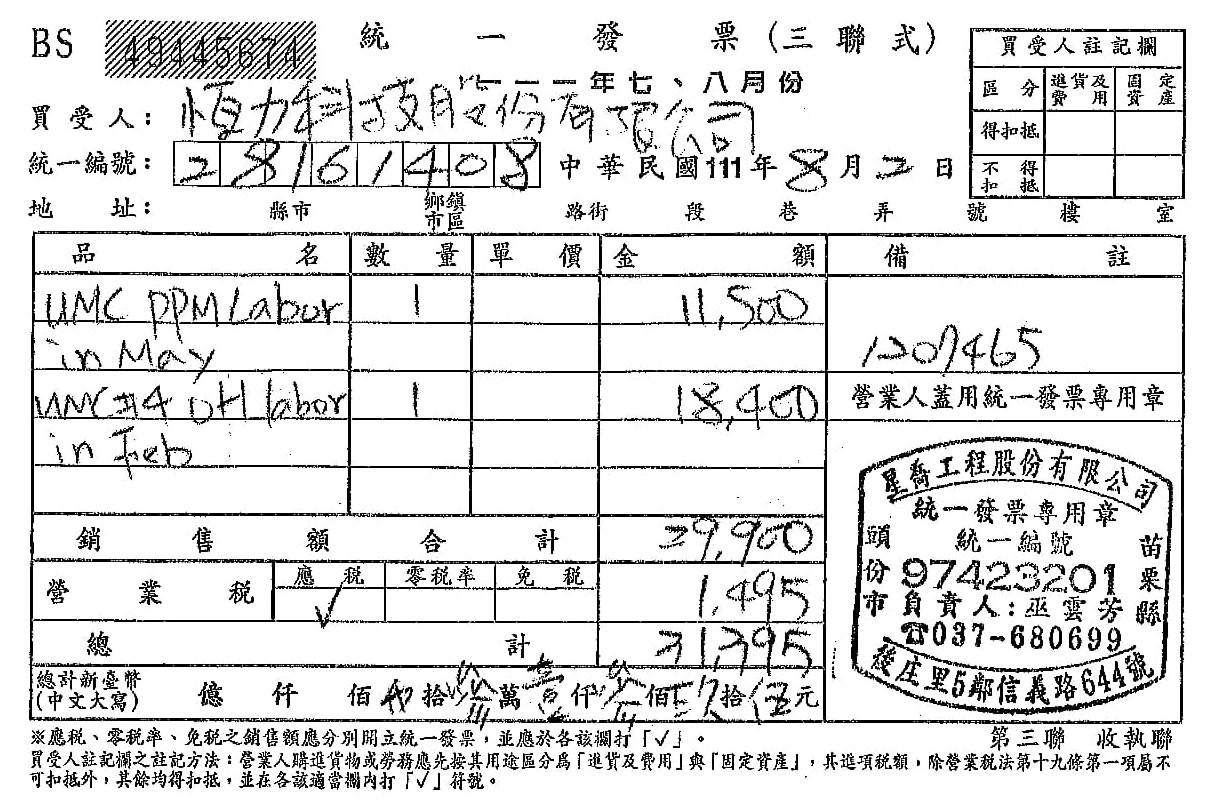 BS 49445674 統一發票(三聯式)
一一一年七、八月份
買受人: 恆力科技股份有限公司
統一編號: 28161408 中華民國111年8月2日
地址: 縣市 鄉鎮市區 路街 段 巷 弄 號 樓 室
買受人註記欄
區分 進貨及費用 固定資產
得扣抵
不得扣抵
品名 數量 單價 金額 備註
UMC PPM Labor 1 11,500
in May 1207465
UMC#4 OH labor 1 18,400 營業人蓋用統一發票專用章
in Feb
銷售額合計 29,900
營業稅 應稅 零稅率 免稅 1,495
√
總計 31,395
總計新臺幣
(中文大寫) 億 仟 佰 拾 參 萬 壹 仟 參 佰 玖 拾 伍 元
星喬工程股份有限公司
統一發票專用章
統一編號
97423201
負責人:巫雲芳
☎037-680699
苗栗縣
頭份市
後庄里5鄰信義路644號
※應稅、零稅率、免稅之銷售額應分別開立統一發票,並應於各該欄打「√」。 第三聯 收執聯
買受人註記欄之註記方法:營業人購進貨物或勞務應先按其用途區分為「進貨及費用」與「固定資產」,其進項稅額,除營業稅法第十九條第一項屬不
可扣抵外,其餘均得扣抵,並在各該適當欄內打「√」符號。